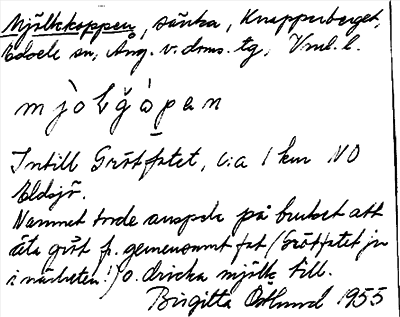 Mjölkkoppen, sänka, Knapperberget,
Edsele sn, Ång. v. doms. tg, Vnl. l.
Intill Grötfatet, c:a 1 km NO
Eldsjö.
Namnet torde anspela på bruket att
äta gröt fr. gemensamt fat (Grötfatet ju
i närheten!) o. dricka mjölk till.
Birgitta Östlund 1955